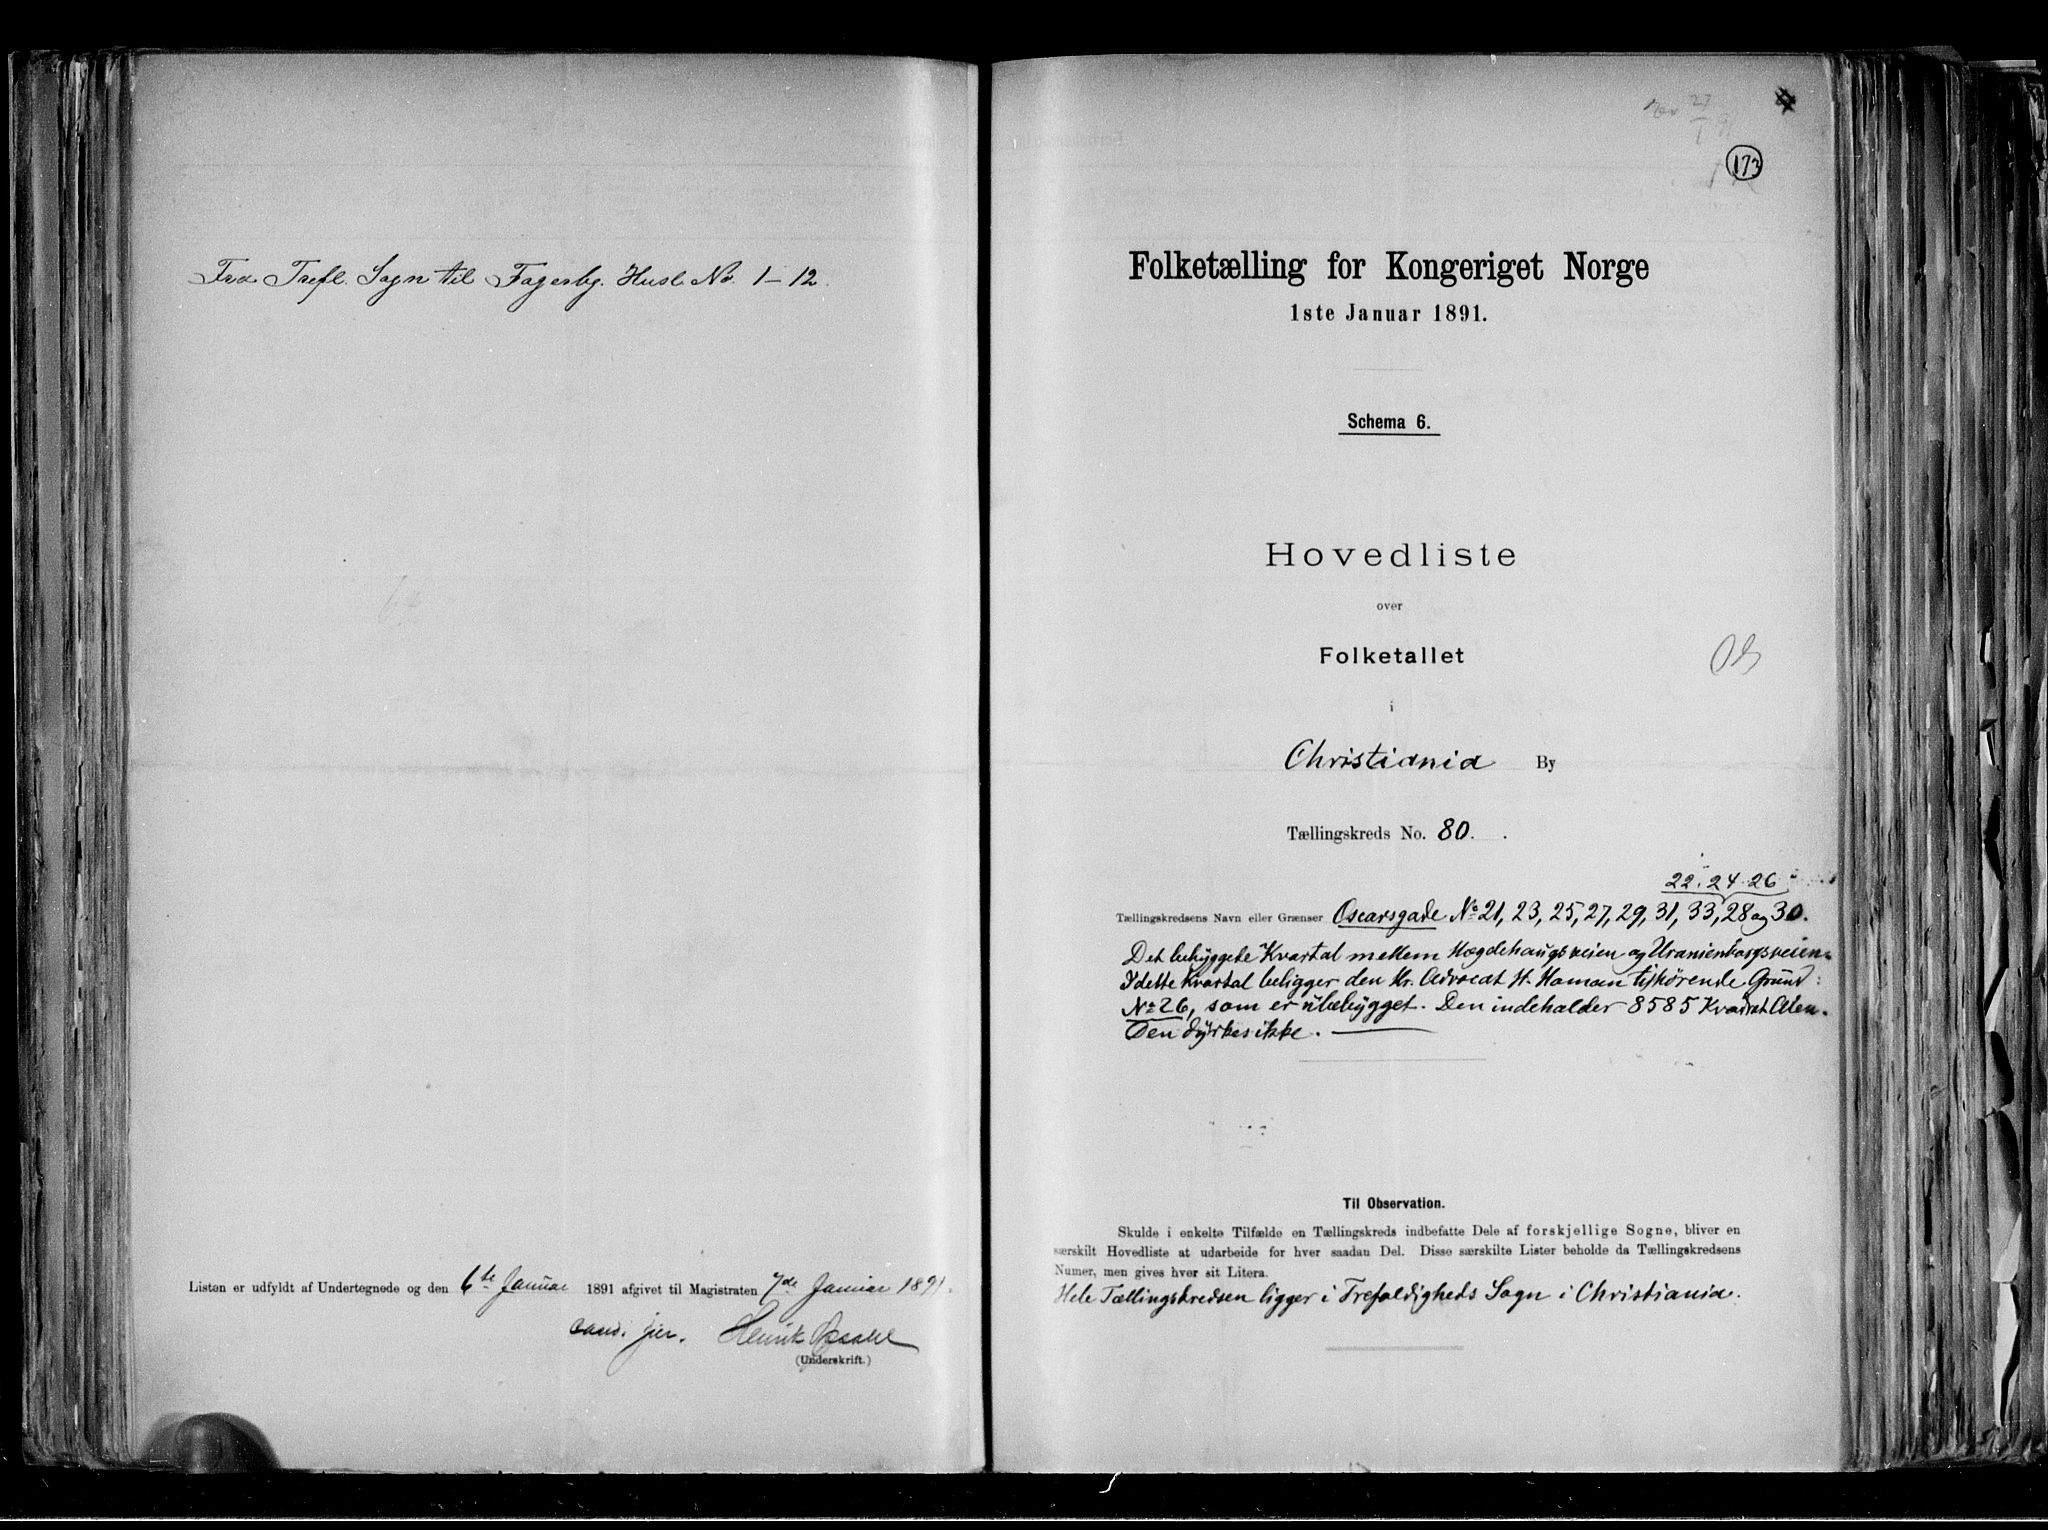 Fra Trefl. Sogn til Fagerbg. Husl. No. 1-12.
Listen er udfyldt af Undertegnede og den 6te Januar 1891 afgivet til Magistraten 7de Januar 1891.
cand. jur. Henrik
(Underskrift.)
27
173
Folketælling for Kongeriget Norge
1ste Januar 1891.
Schema 6.
Hovedliste
over
Folketallet
i
Christiania By
Tællingskreds No. 80.
22. 24. 26
Tællingskredsens Navn eller Grænser Oscarsgade No 21, 23, 25, 27, 29, 31, 33, 28 og 30.
Det bebyggede Kvartal mellem Hægdehaugsveien og Uranienborgsveien.
I dette Kvartal beligger den Hr. Advocat H. Haman tilhørende Grund:
No 26, som er ubebygget. Den indeholder 8585 Kvadrat Alen.
Den dyrkes ikke.
Til Observation.
Skulde i enkelte Tilfælde en Tællingskreds indbefatte Dele af forskjellige Sogne, bliver en
særskilt Hovedliste at udarbeide for hver saadan Del. Disse særskilte Lister beholde da Tællingskredsens
Numer, men gives hver sit Litera.
Hele Tællingskredsen ligger i Trefoldigheds Sogn i Christiania.